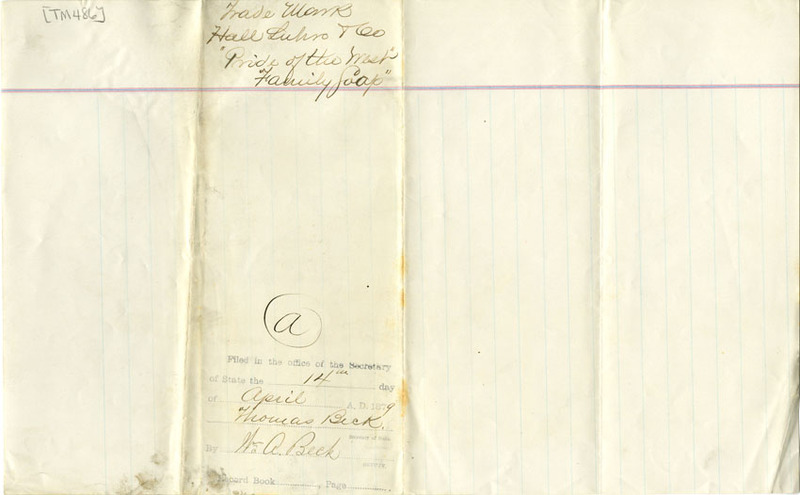 [TM486]
Trade Mark
Hall Luhrs & Co
"Pride of the West
Family Soap"
a
Filed in the office of the Secretary
of State the 14th day
of April A. D. 1879
Thomas Beck,
Secretary of State
By Wm. A. Beck
Deputy.
Record Book , Page